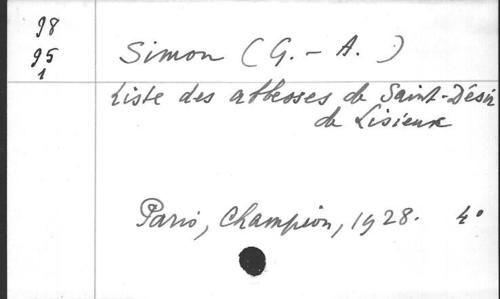 98
95
1
Simon (G. - A.)
Liste des abbesses de Saint-Désir
de Lisieux
Paris, Champion, 1928. 4°